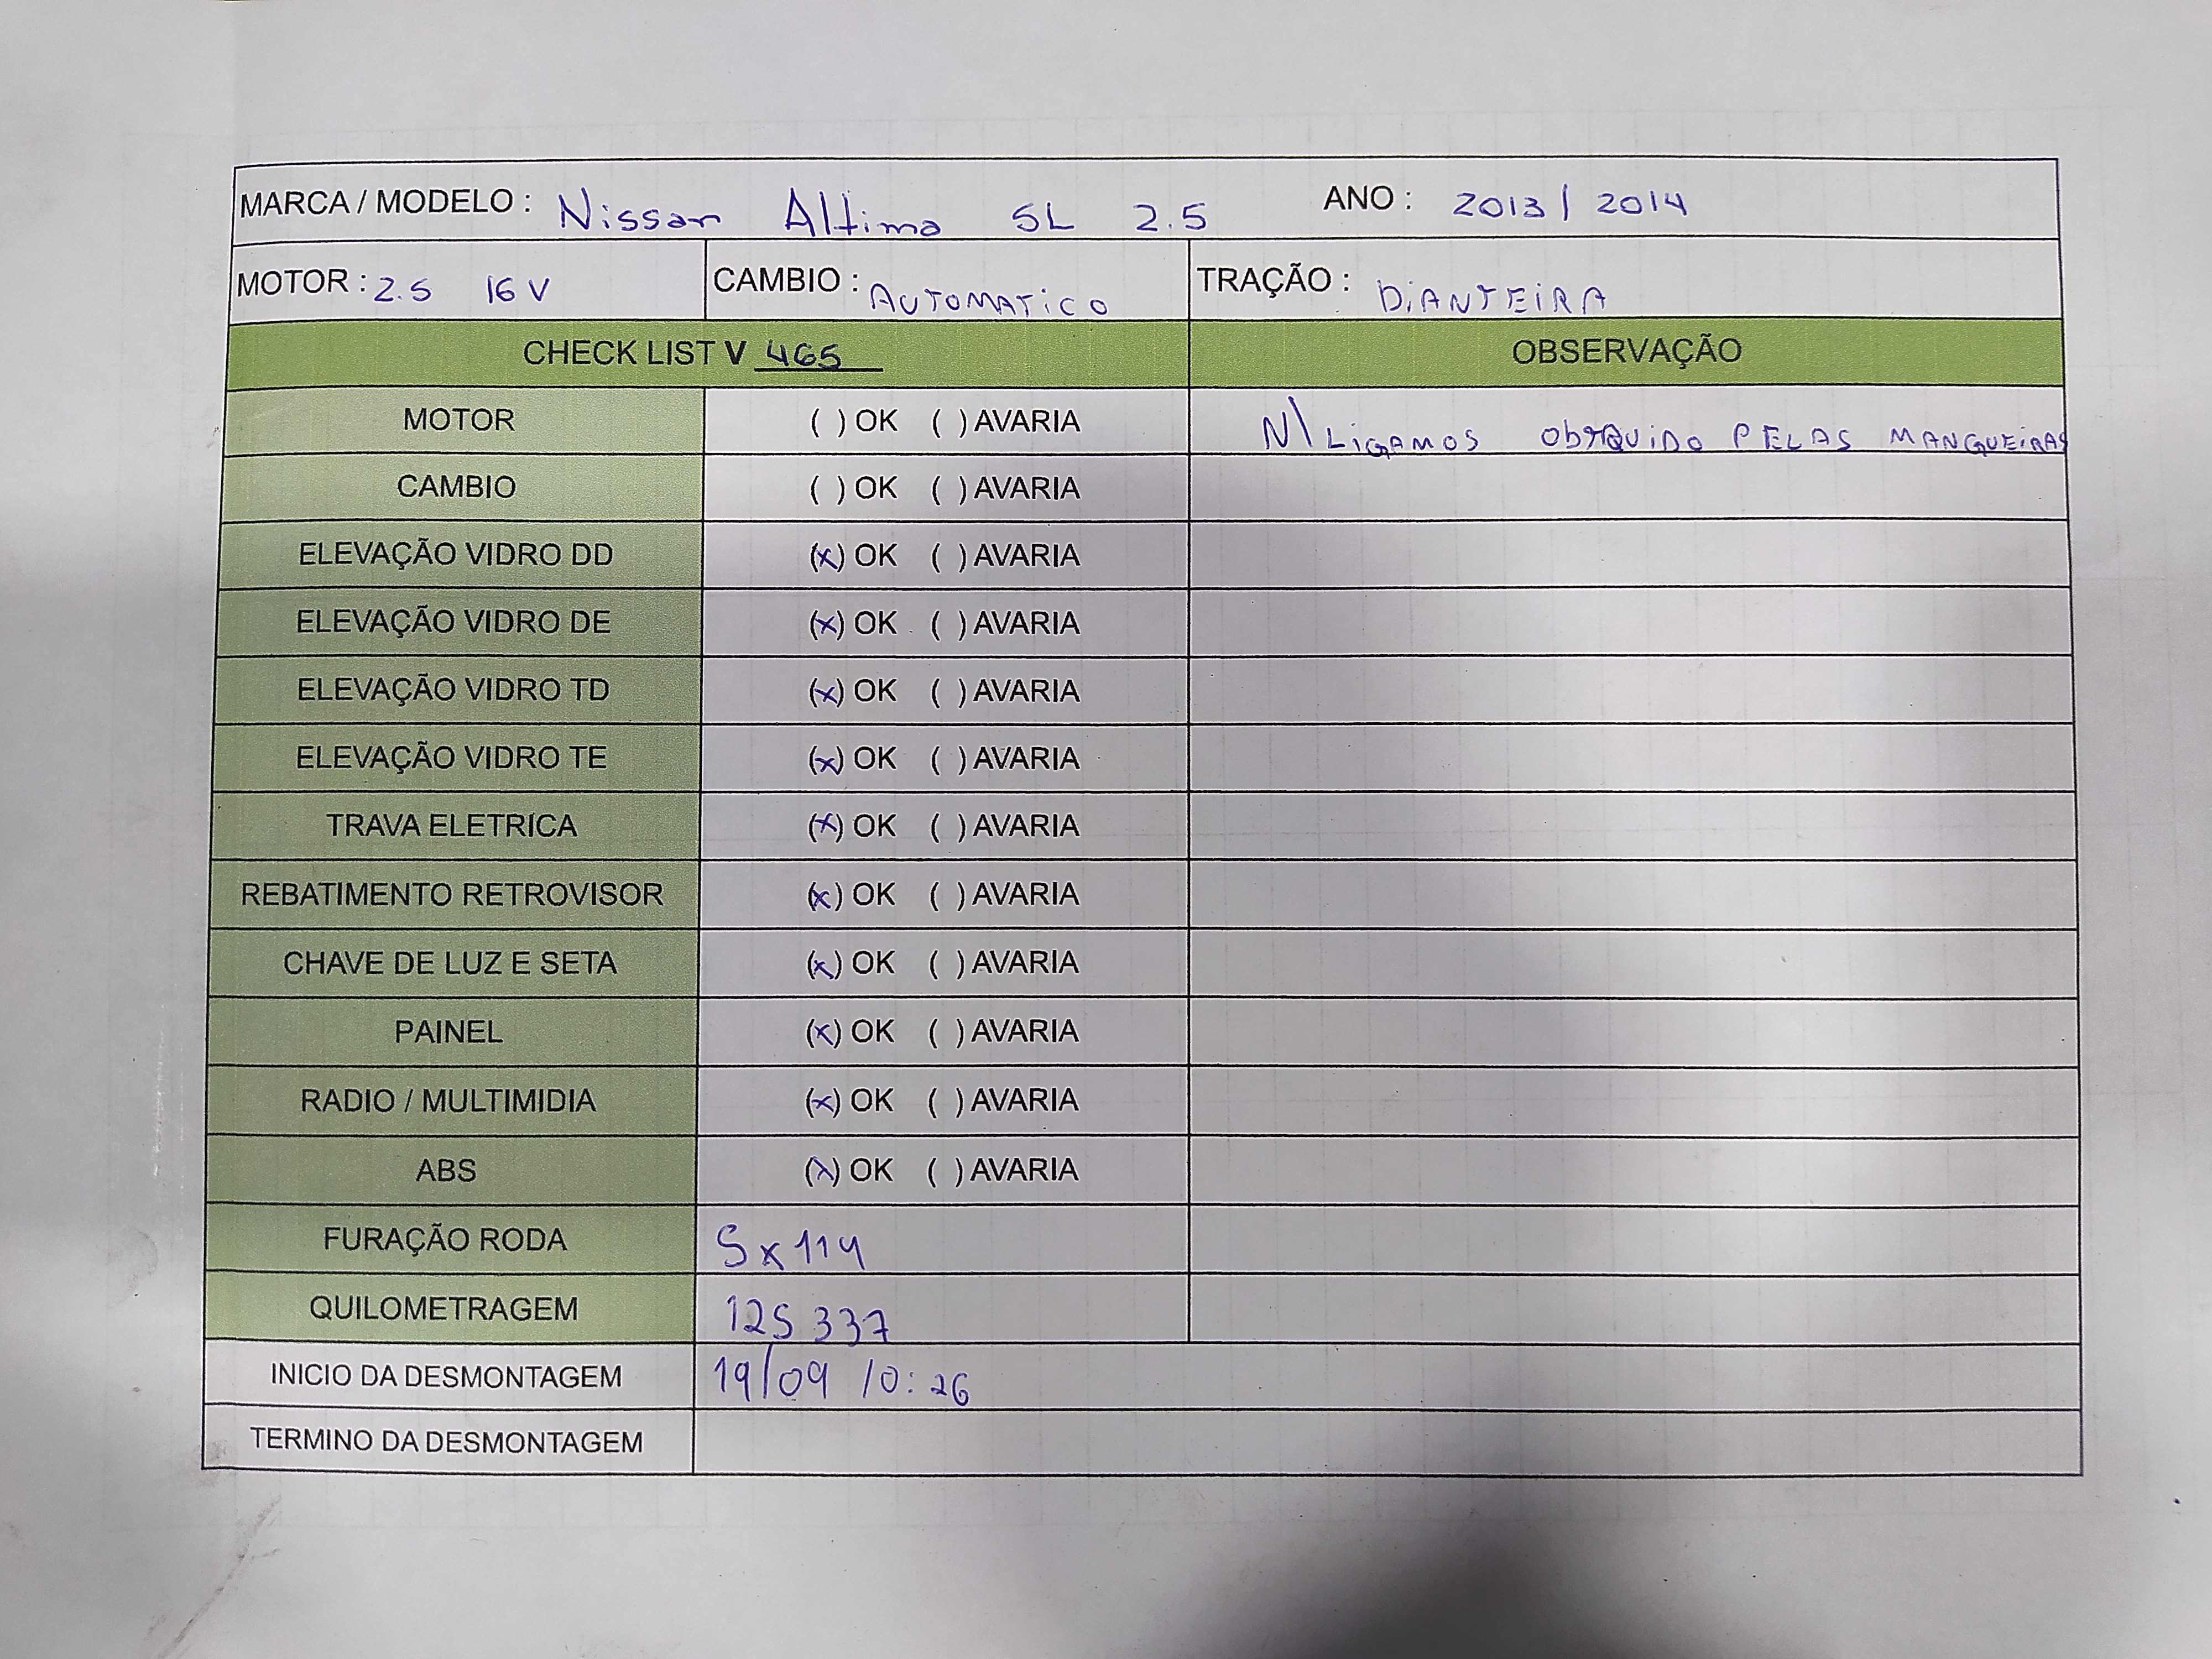 MARCA / MODELO : Nissan Altima SL 2.5 ANO : 2013 / 2014
MOTOR : 2.5 16 V CAMBIO : AUTOMATICO TRAÇÃO : DiANTEiRA
CHECK LIST V 465 OBSERVAÇÃO
MOTOR ( ) OK ( ) AVARIA N\ LiGAMOS ObSTRUiDO PELAS MANGUEiRAS
CAMBIO ( ) OK ( ) AVARIA
ELEVAÇÃO VIDRO DD (x) OK ( ) AVARIA
ELEVAÇÃO VIDRO DE (x) OK ( ) AVARIA
ELEVAÇÃO VIDRO TD (x) OK ( ) AVARIA
ELEVAÇÃO VIDRO TE (x) OK ( ) AVARIA
TRAVA ELETRICA (x) OK ( ) AVARIA
REBATIMENTO RETROVISOR (x) OK ( ) AVARIA
CHAVE DE LUZ E SETA (x) OK ( ) AVARIA
PAINEL (x) OK ( ) AVARIA
RADIO / MULTIMIDIA (x) OK ( ) AVARIA
ABS (x) OK ( ) AVARIA
FURAÇÃO RODA 5x114
QUILOMETRAGEM 125 337
INICIO DA DESMONTAGEM 19/09 10:26
TERMINO DA DESMONTAGEM